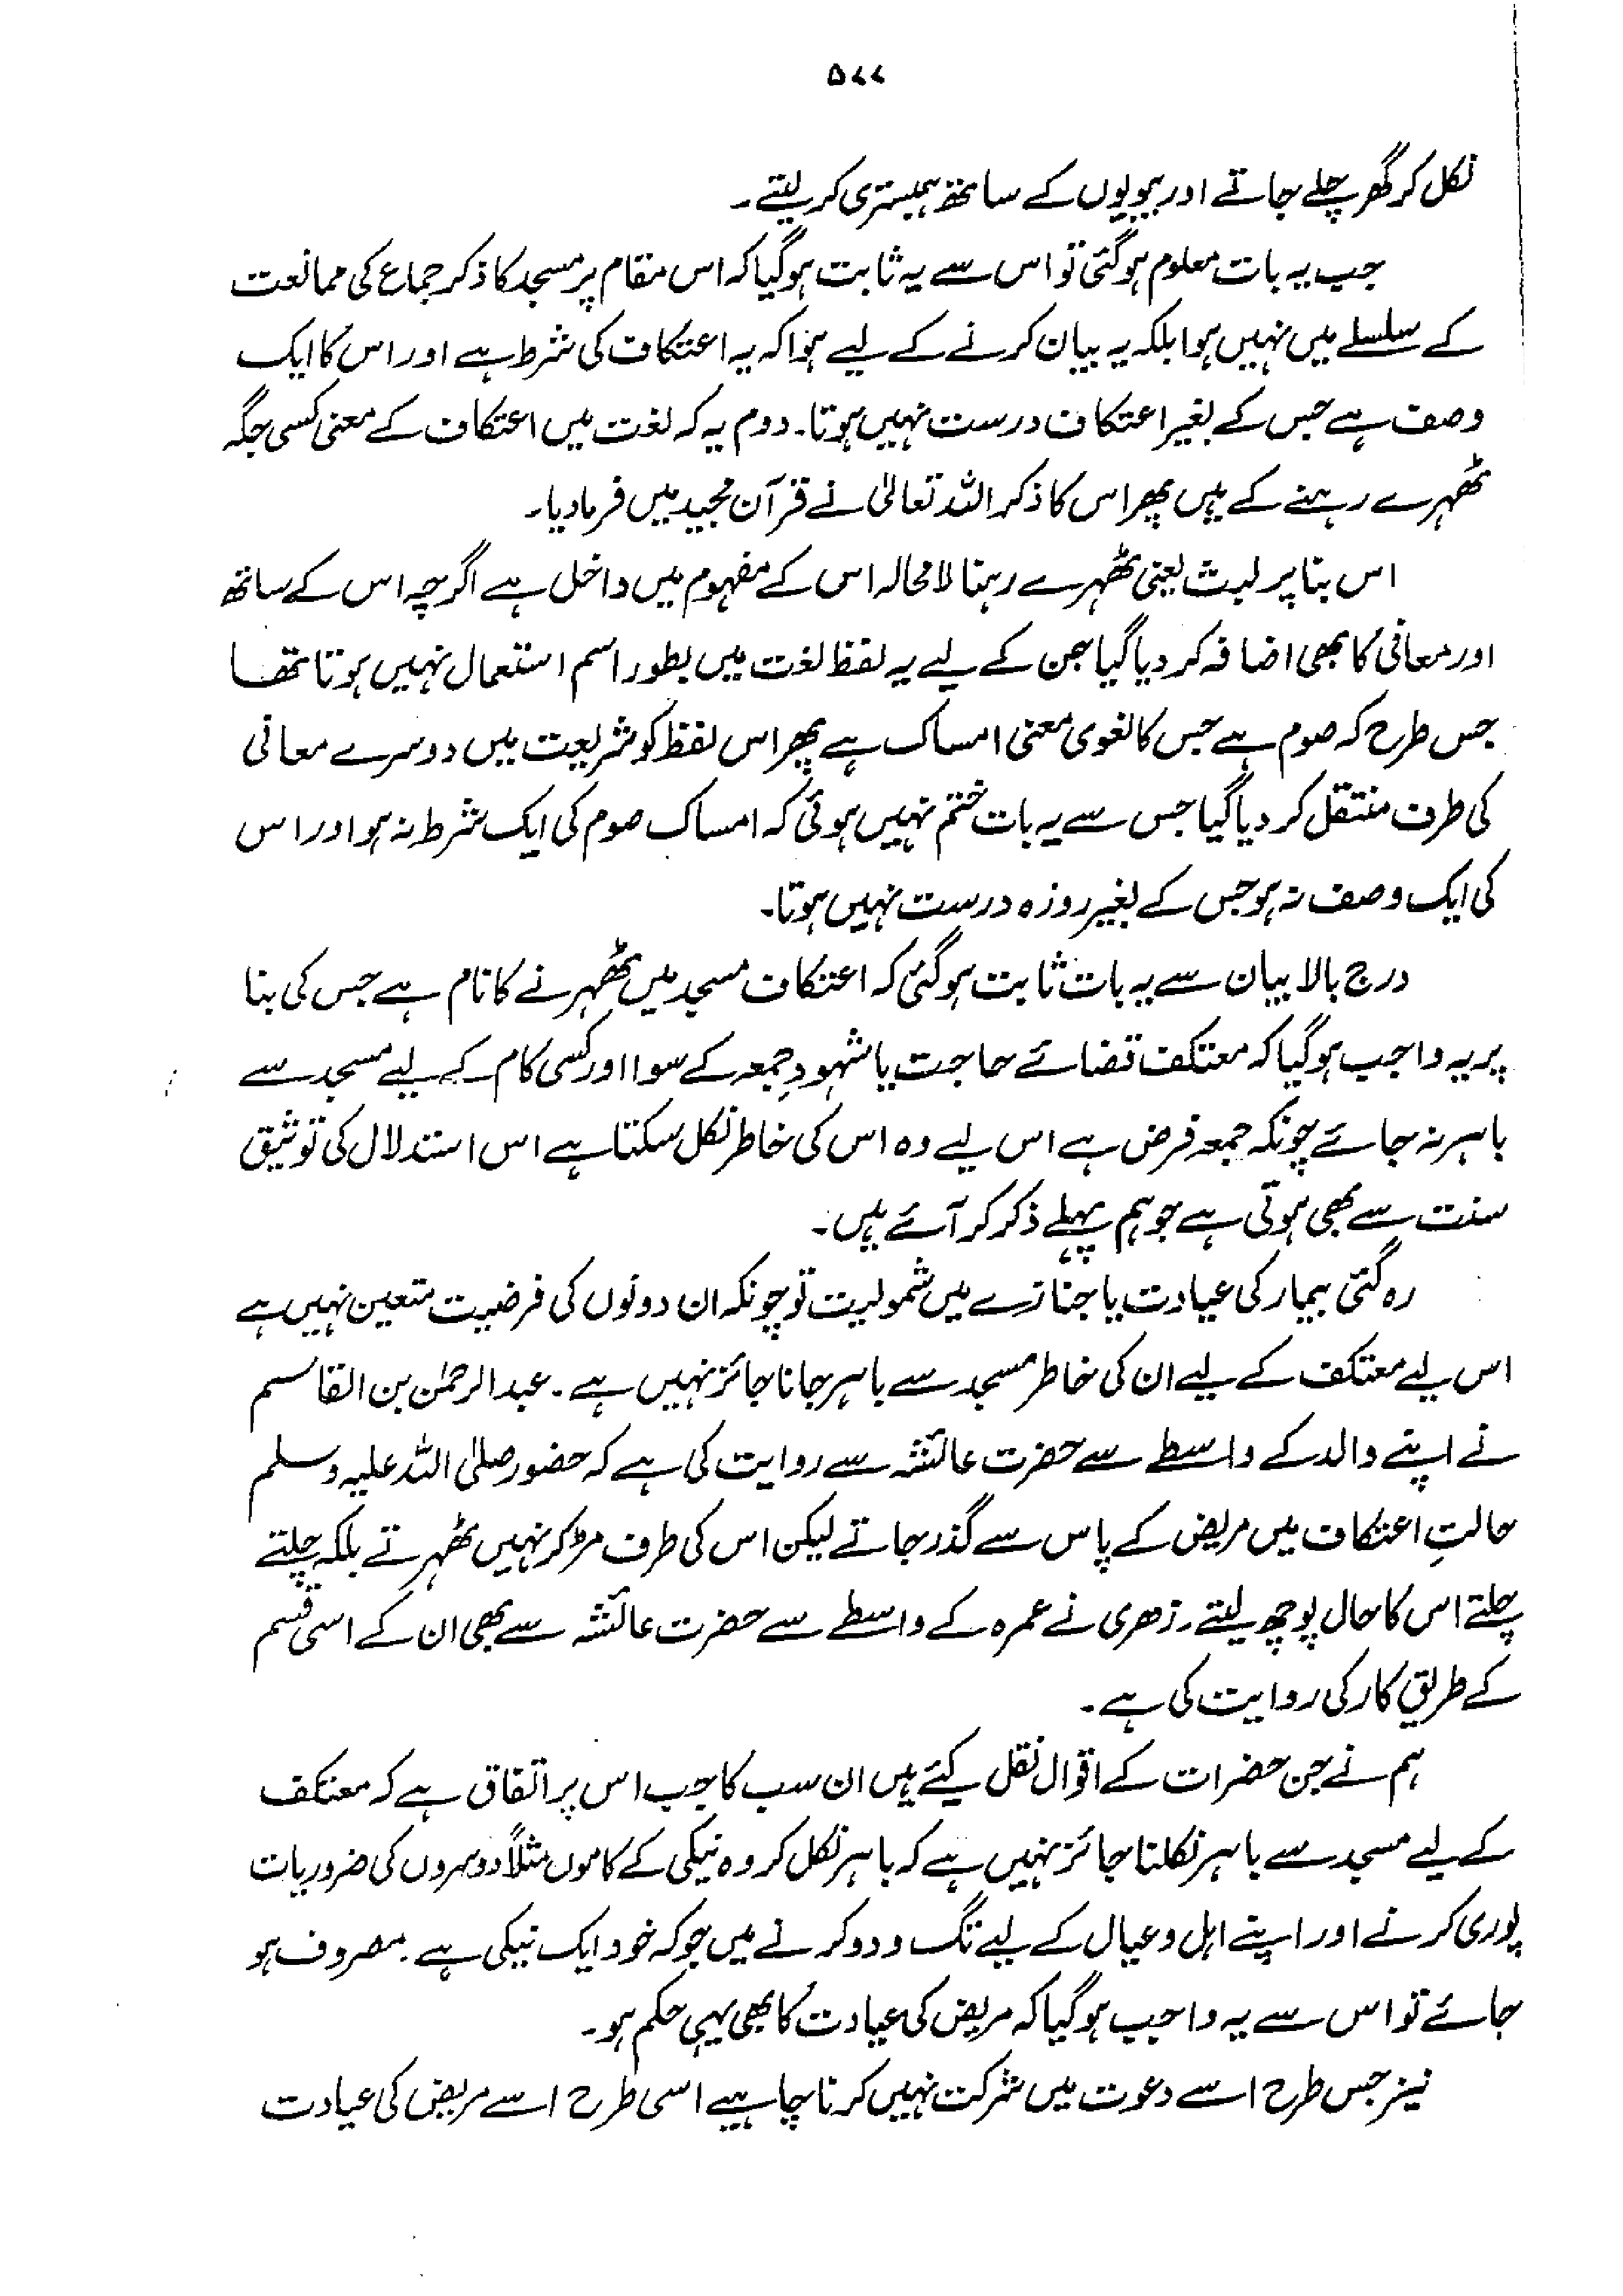 ۵۷۷
نکل کر گھر چلے جاتے اور بیویوں کے ساتھ ہمبستری کر لیتے۔
جب یہ بات معلوم ہوگئی تو اس سے یہ ثابت ہوگیا کہ اس مقام پر مسجد کا ذکر جماع کی ممانعت
کے سلسلے میں نہیں ہوا بلکہ یہ بیان کرنے کے لیے ہوا کہ یہ اعتکاف کی شرط ہے اور اس کا ایک
وصف ہے جس کے بغیر اعتکاف درست نہیں ہوتا۔ دوم یہ کہ لغت میں اعتکاف کے معنی کسی جگہ
ٹھہرے رہنے کے ہیں پھر اس کا ذکر اللہ تعالیٰ نے قرآن مجید میں فرما دیا۔
اس بنا پر لبث یعنی ٹھہرے رہنا لامحالہ اس کے مفہوم میں داخل ہے اگرچہ اس کے ساتھ
اور معانی کا بھی اضافہ کر دیا گیا جن کے لیے یہ لفظ لغت میں بطور اسم استعمال نہیں ہوتا تھا
جس طرح کہ صوم ہے جس کا لغوی معنی امساک ہے پھر اس لفظ کو شریعت میں دوسرے معانی
کی طرف منتقل کر دیا گیا جس سے یہ بات ختم نہیں ہوئی کہ امساک صوم کی ایک شرط نہ ہو اور اس
کی ایک وصف نہ ہو جس کے بغیر روزہ درست نہیں ہوتا۔
درج بالا بیان سے یہ بات ثابت ہوگئی کہ اعتکاف مسجد میں ٹھہرنے کا نام ہے جس کی بنا
پر یہ واجب ہوگیا کہ معتکف قضائے حاجت یا شہودِ جمعہ کے سوا اور کسی کام کے لیے مسجد سے
باہر نہ جائے چونکہ جمعہ فرض ہے اس لیے وہ اس کی خاطر نکل سکتا ہے اس استدلال کی توثیق
سنت سے بھی ہوتی ہے جو ہم پہلے ذکر کر آئے ہیں۔
رہ گئی بیمار کی عیادت یا جنازے میں شمولیت تو چونکہ ان دونوں کی فرضیت متعین نہیں ہے
اس لیے معتکف کے لیے ان کی خاطر مسجد سے باہر جانا جائز نہیں ہے۔ عبدالرحمٰن بن القاسم
نے اپنے والد کے واسطے سے حضرت عائشہ سے روایت کی ہے کہ حضور صلی اللہ علیہ وسلم
حالتِ اعتکاف میں مریض کے پاس سے گذر جاتے لیکن اس کی طرف مڑ کر نہیں ٹھہرتے بلکہ چلتے
چلتے اس کا حال پوچھ لیتے۔ زھری نے عمرہ کے واسطے سے حضرت عائشہ سے بھی ان کے اسی قسم
کے طریقِ کار کی روایت کی ہے۔
ہم نے جن حضرات کے اقوال نقل کیئے ہیں ان سب کا جب اس پر اتفاق ہے کہ معتکف
کے لیے مسجد سے باہر نکلنا جائز نہیں ہے کہ باہر نکل کر وہ نیکی کے کاموں مثلاً دوسروں کی ضروریات
پوری کرنے اور اپنے اہل و عیال کے لیے تگ و دو کرنے میں جو کہ خود ایک نیکی ہے۔ مصروف ہو
جائے تو اس سے یہ واجب ہوگیا کہ مریض کی عیادت کا بھی یہی حکم ہو۔
نیز جس طرح اسے دعوت میں شرکت نہیں کرنا چاہیے اسی طرح اسے مریض کی عیادت